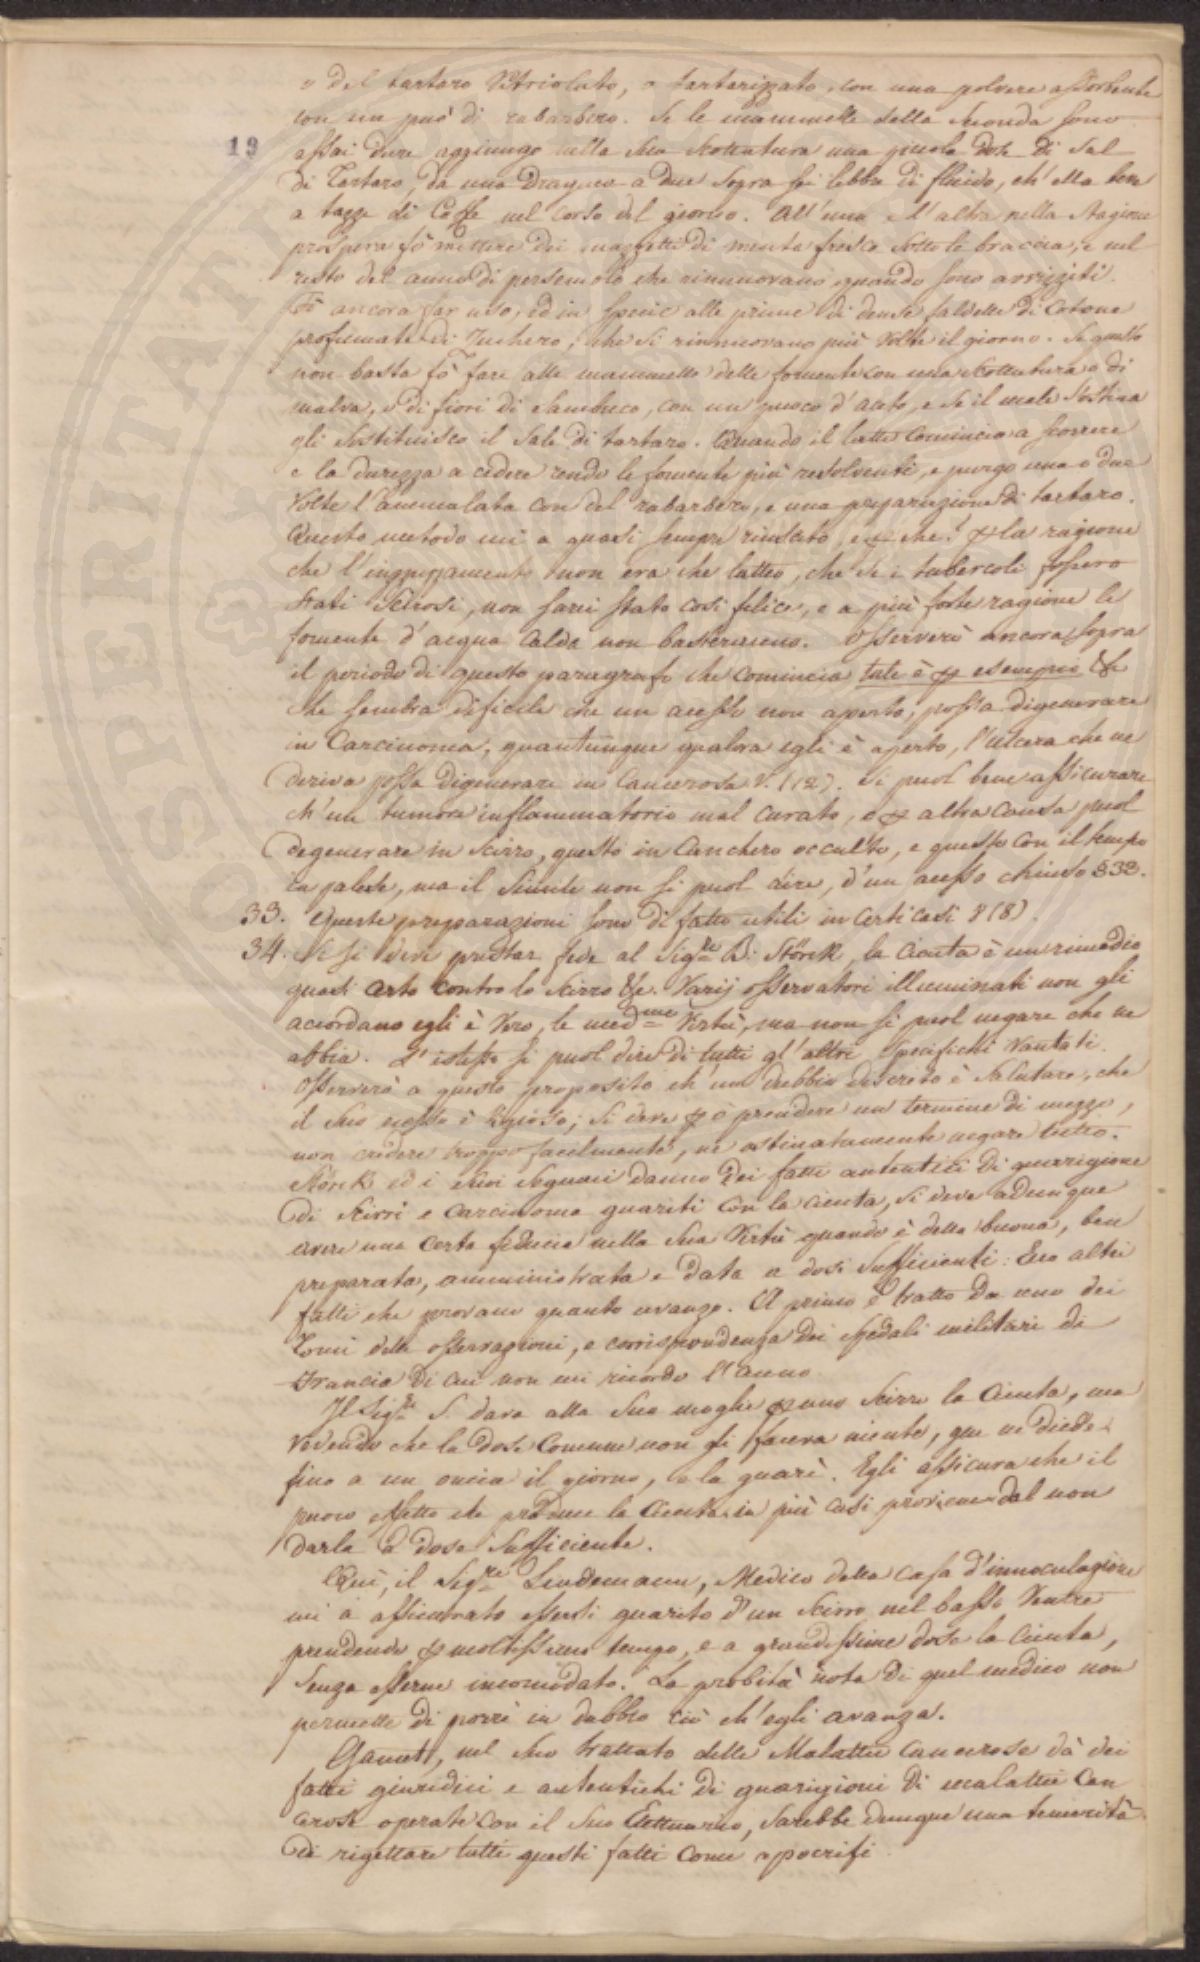 o del tartaro Vitriolato, o tartarizzato, con una polvere assorbente
con un può di rabarbero. Se le mammelle della seconda sono
19
assai dure aggiungo nella sua scottatura una picola dose di Sal
di Tartaro, da una Dragma a due sopra sei libbre di fluido, ch'ella beve
a tazze di Caffe nel corso del giorno. All'una e l'altra nella stagione
prospera fò mettere dei mazzetti di menta fresca sotto le braccia, e nel
resto del anno di persemolo che rinnuovano quando sono avvizziti.
Fò ancora far uso, ed in specie alle prime di dense faldelle di Cotone
profumate di Zuchero, che si rinnuovano più volte il giorno. Se questo
non basta fò fare alle mammelle delle fomente con una scottatura o di
malva, o di fiori di Sambuco, con un puoco d'aceto, e se il male s'ostina
gli sostituisco il Sale di tartaro. Quando il latte comincia a scorrere
e la durezza a cedere rendo le fomente più resolventi, e purgo una o due
volte l'ammalata con del rabarbero, e una preparazione di tartaro.
Questo metodo mi a quasi sempre riuscito, e p che? p la ragione
che l'inzuppamento non era che latteo, che se i tubercoli fossero
stati Scirosi, non sarei stato così felice, e a più forte ragione le
fomente d'acqua calda non basteranno. Osserverò ancora sopra
il periodo di questo paragrafo che comincia tale è p esempio &c
che sembra dificile che un acesso non aperto, possa digenerare
in Carcinoma, quantunque qualora egli è aperto, l'ulcera che ne
deriva possa digenerare in Cancerosa V. (12). Si puol bene assicurare
ch'un tumore inflammatorio mal curato, o p altra causa puol
degenerare in Scirro, questo in Canchero occulto, e questo con il tempo
in palese, ma il simile non si puol dire, d'un acesso chiuso § 32.
33. Queste prepparazioni sono di fatto utili in certi casi § (8).
34. Se si deve prestar fede al Sig.re B: Störck, la cicuta è un rimedio
quasi certo contro lo scirro &c. Varij osservatori illuminati non gli
accordano egli è vero, le med.me Virtù, ma non si puol negare che ne
abbia. L'istesso si puol dire di tutti gl'altri specifichi vantati.
Osserverò a questo proposito ch'un dubbio discreto è salutare, che
il suo ecesso è vizioso; si deve p ò prendere un termine di mezzo,
non credere troppo facilmente, ne ostinatamente negare tutto.
Störck ed i suoi seguaci danno dei fatti autentici di guarrigione
di scirri e carcinoma guariti con la cicuta, si deve adunque
avere una certa fiducia nella sua Virtù quando è della buona, ben
preparata, amministrata e data a dosi sufficienti: Eco altri
fatti che provano quanto avanzo. Il primo è tratto da uno dei
Tomi delle osservazioni, e corrispondenza dei spedali militari di
Francia di cui non mi ricordo l'anno
Il Sig.re S. dava alla sua moglie p uno scirro la Cicuta, ma
vedendo che la dose comune non gli faceva niente, gne ne diede
fino a un oncia il giorno, e la guarì. Egli assicura che il
puoco effetto che produce la Cicuta in più casi proviene dal non
darla a dose sufficiente.
Qui, il Sig.re Lindemann, Medico della casa d'innoculazione
mi a assicurato essersi guarito d'un Scirro nel basso Ventre
prendendo p moltissimo tempo, e a grandissime dose la Cicuta,
senza esserne incomodato. La probità nota di quel medico non
permette di porre in dubbio ciò ch'egli avanza.
Gamet, nel suo trattato delle Malattie cancerose dà dei
fatti giuridici e autentichi di guarigioni di malattie can
cerose operate con il suo Elettuario, sarebbe dunque una temerità
di rigettare tutti questi fatti come apocrifi